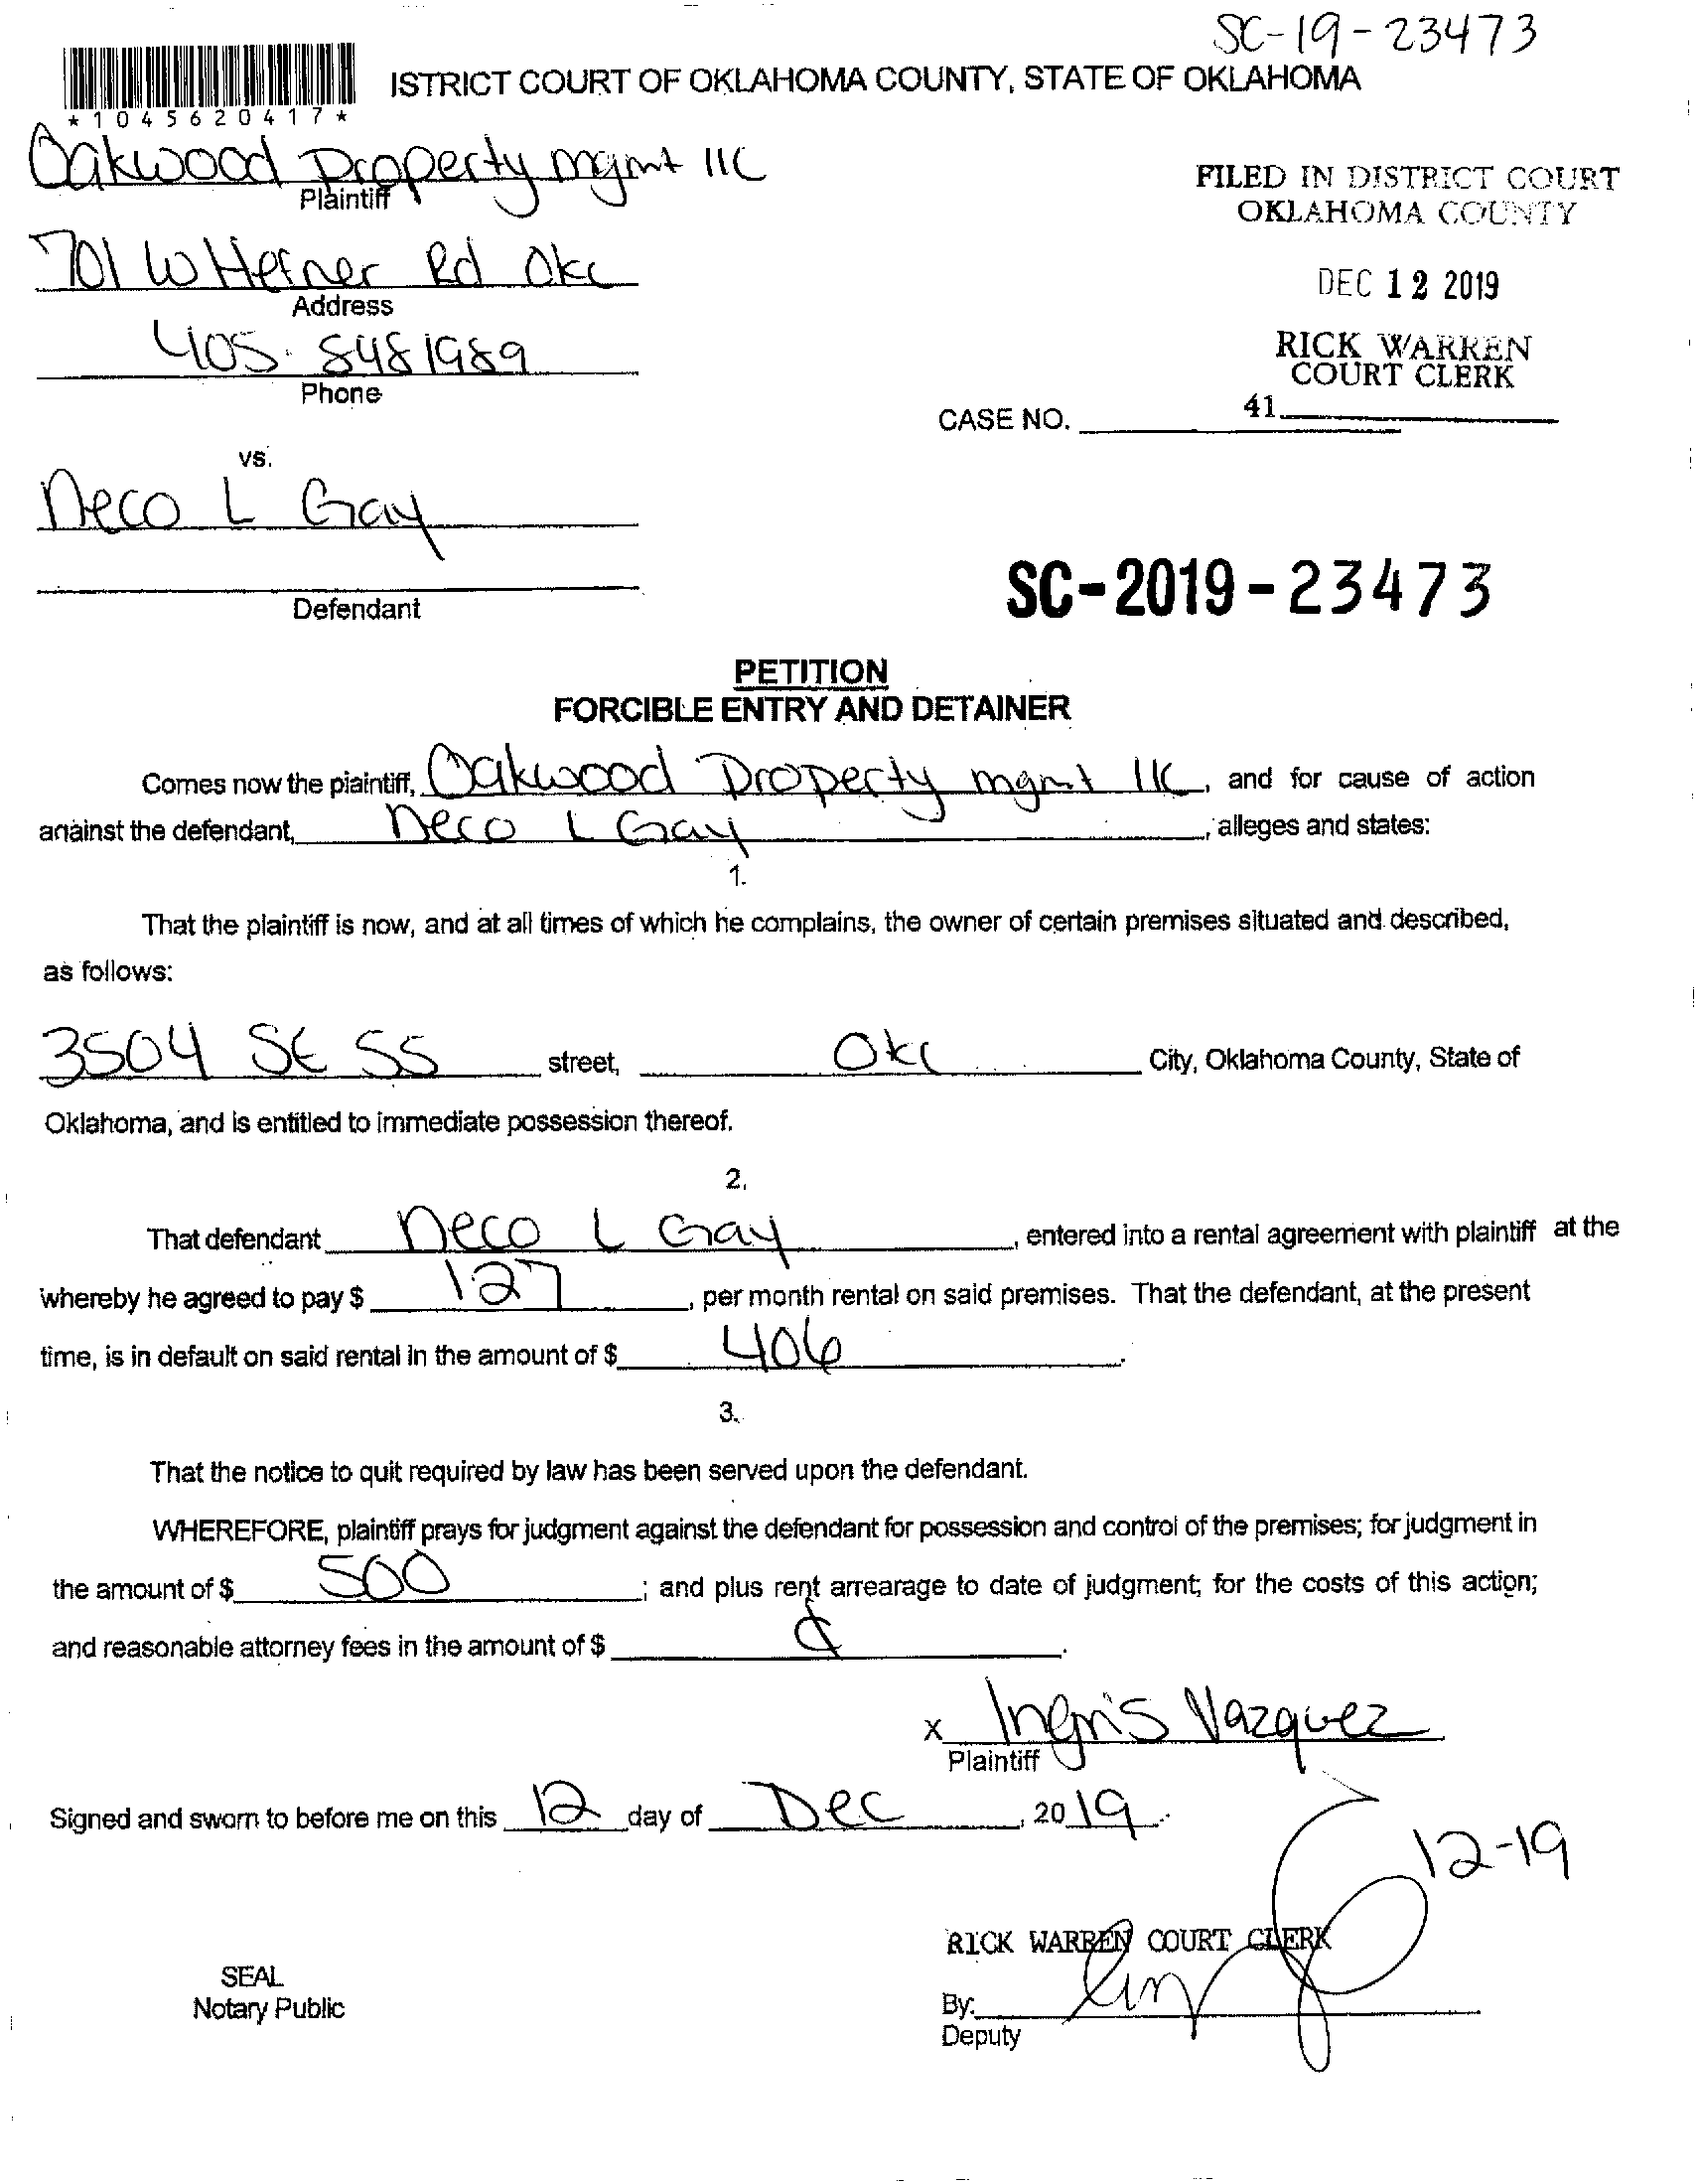 SC-19-23473
ISTRICT COURT OF OKLAHOMA COUNTY, STATE OF OKLAHOMA
*1045620417*
Oakwood Property mgmt llc
Plaintiff
FILED IN DISTRICT COURT
OKLAHOMA COUNTY
701 W Hefner Rd Okc
Address
DEC 12 2019
405. 8481989
Phone
RICK WARREN
COURT CLERK
41
CASE NO.
vs.
Neco L Gay
Defendant
SC-2019-23473
PETITION
FORCIBLE ENTRY AND DETAINER
Comes now the plaintiff, Oakwood Property mgmt llc, and for cause of action
against the defendant, Neco L Gay, alleges and states:
1.
That the plaintiff is now, and at all times of which he complains, the owner of certain premises situated and described,
as follows:
3504 SE 55 street, Okc City, Oklahoma County, State of
Oklahoma, and is entitled to immediate possession thereof.
2.
That defendant Neco L Gay, entered into a rental agreement with plaintiff at the
whereby he agreed to pay $ 127, per month rental on said premises. That the defendant, at the present
time, is in default on said rental in the amount of $ 406.
3.
That the notice to quit required by law has been served upon the defendant.
WHEREFORE, plaintiff prays for judgment against the defendant for possession and control of the premises; for judgment in
the amount of $ 500; and plus rent arrearage to date of judgment; for the costs of this action;
and reasonable attorney fees in the amount of $ .
x Ingris Vazquez
Plaintiff
Signed and sworn to before me on this 12 day of Dec, 2019.
12-19
RICK WARREN COURT CLERK
SEAL
Notary Public
By:
Deputy